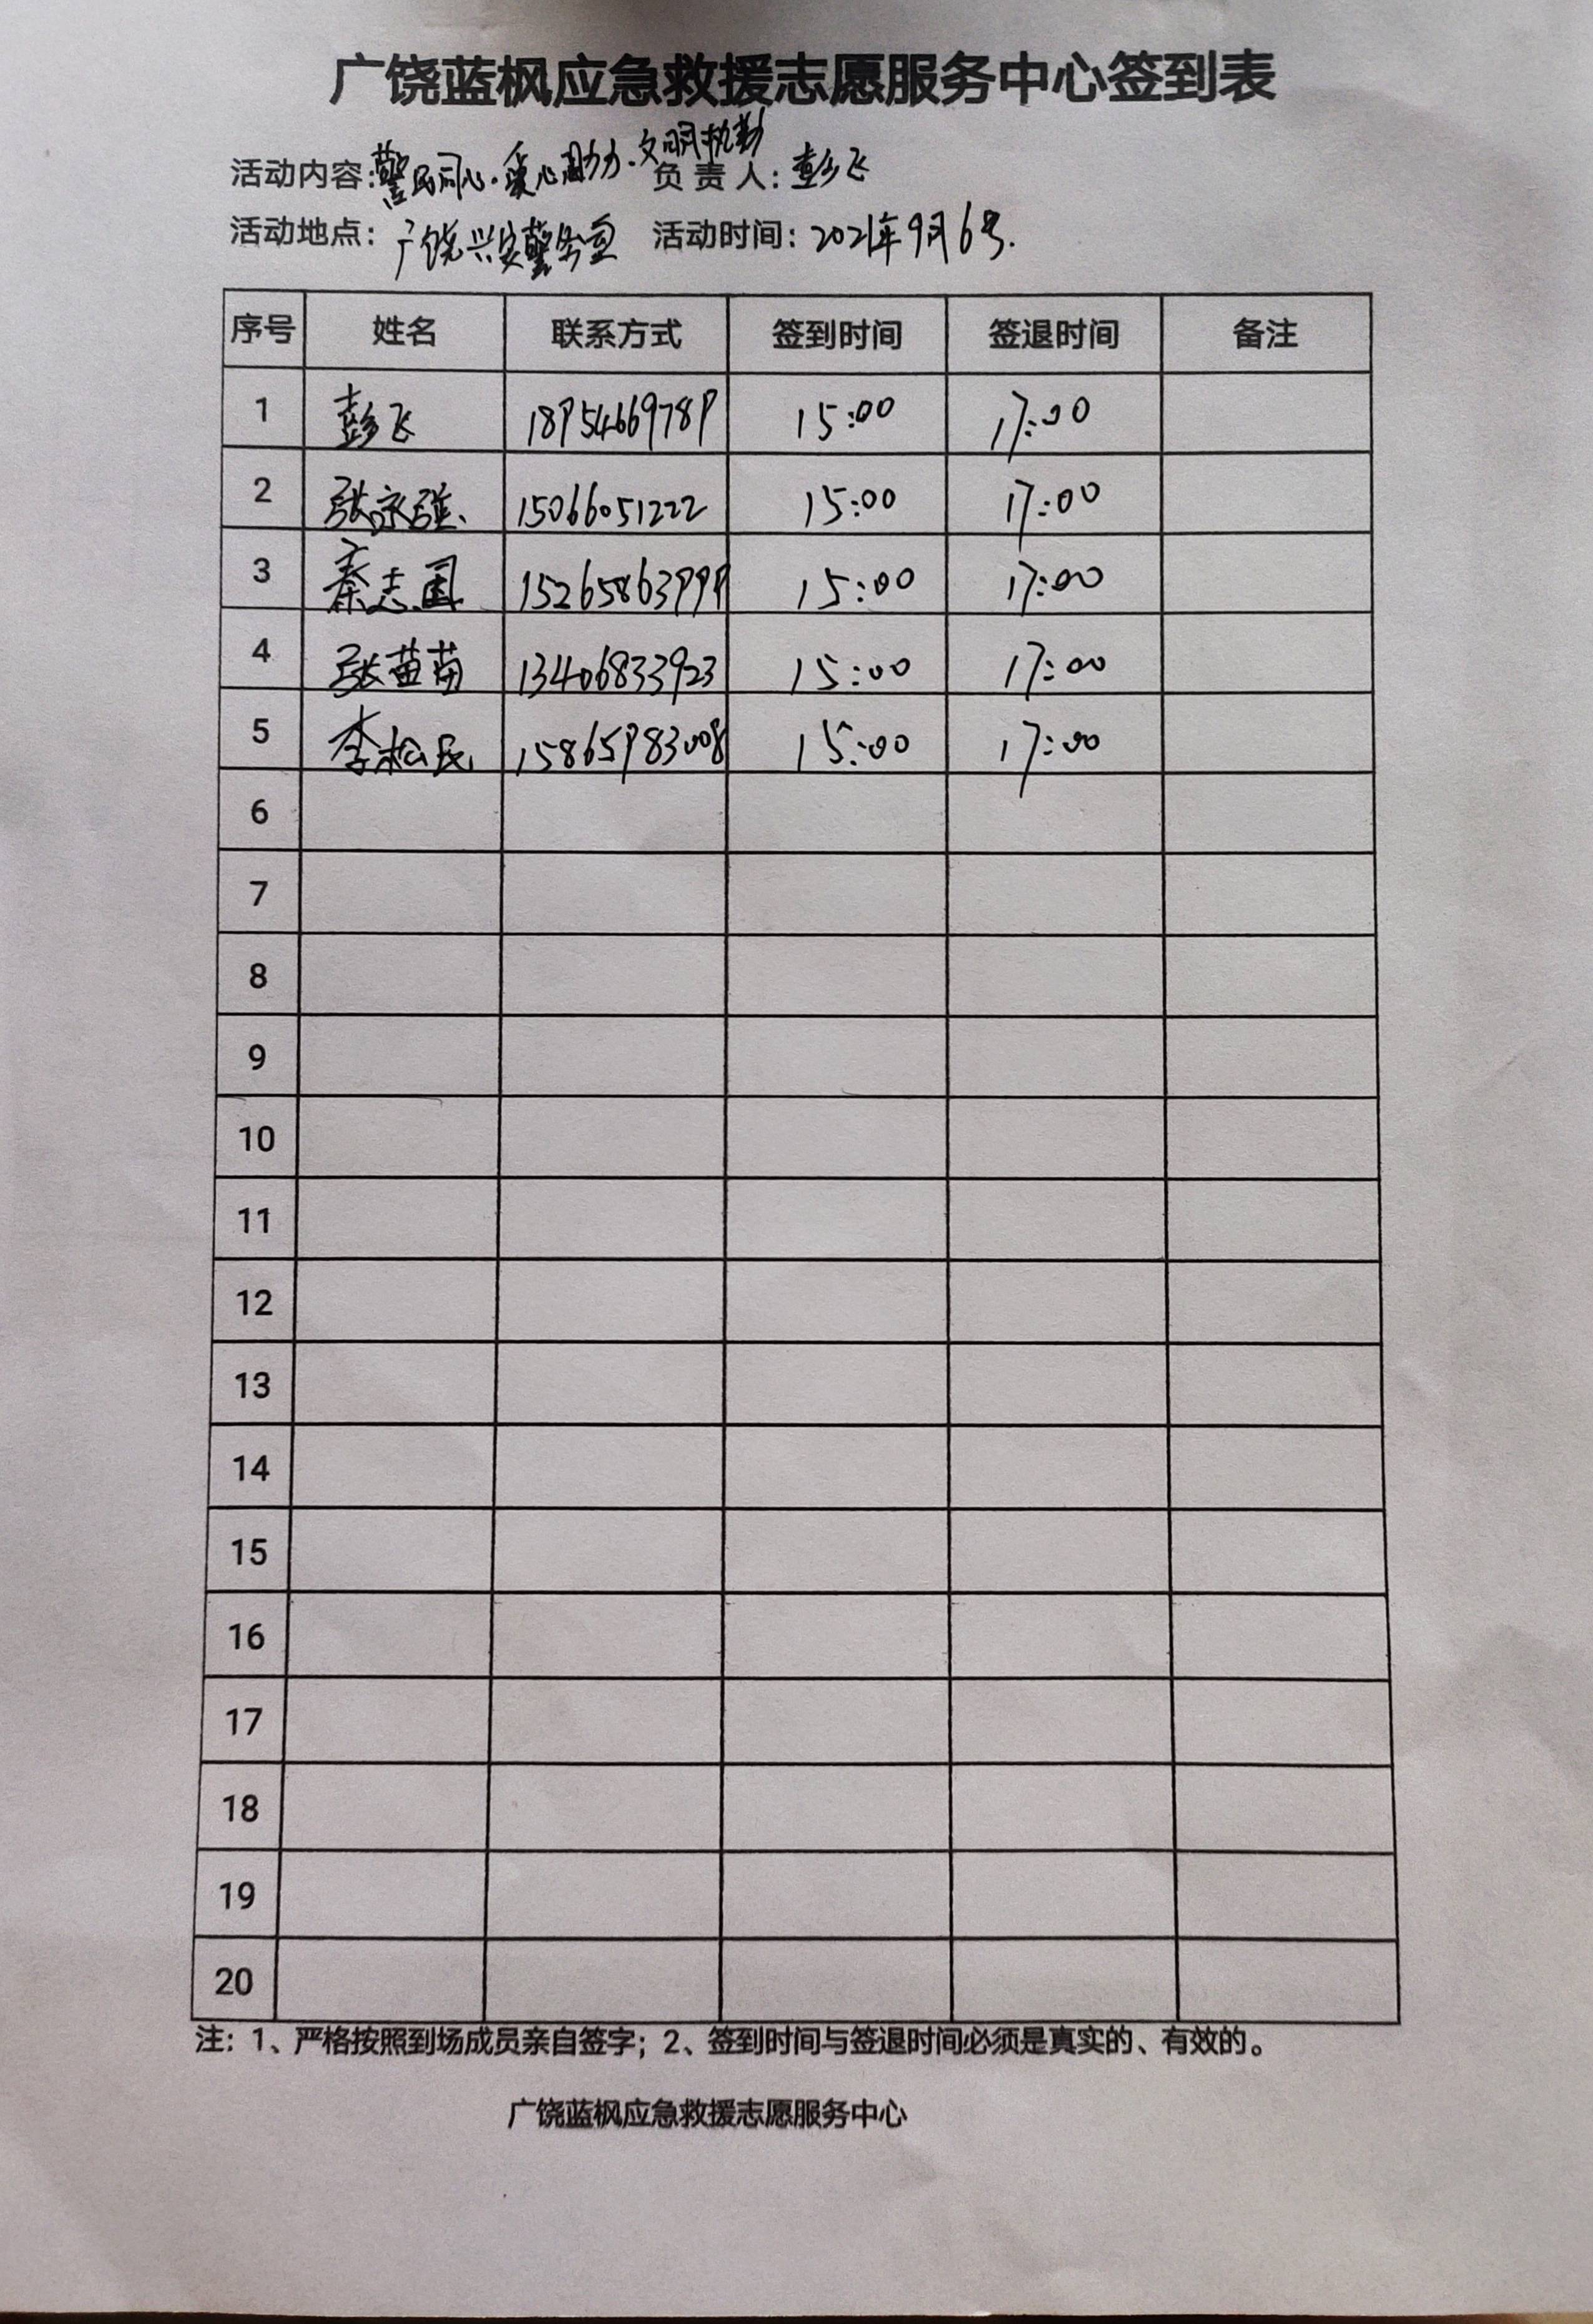 广饶蓝枫应急救援志愿服务中心签到表
活动内容:警民同心·爱心助力·文明执勤 负责人:彭飞
活动地点: 广饶兴安警务室 活动时间: 2021年9月6号.
序号 姓名 联系方式 签到时间 签退时间 备注
1 彭飞 18954669789 15:00 17:00
2 张永强 15066051222 15:00 17:00
3 秦志国 15265863999 15:00 17:00
4 张苗苗 13406833923 15:00 17:00
5 李松民 15865983008 15:00 17:00
6
7
8
9
10
11
12
13
14
15
16
17
18
19
20
注：1、严格按照到场成员亲自签字；2、签到时间与签退时间必须是真实的、有效的。
广饶蓝枫应急救援志愿服务中心